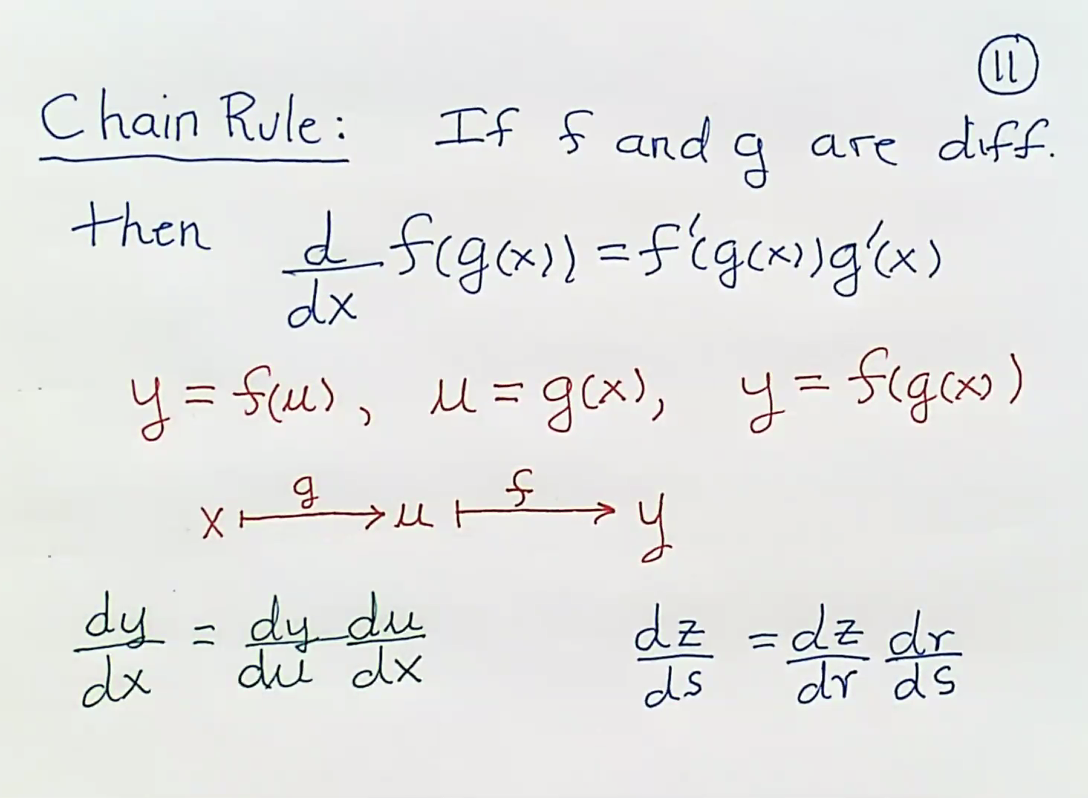 11
Chain Rule: If f and g are diff.
then d/dx f(g(x)) = f'(g(x))g'(x)
y = f(u), u = g(x), y = f(g(x)
g f
x ↦ u ↦ y
dy/dx = dy/du du/dx dz/ds = dz/dr dr/ds